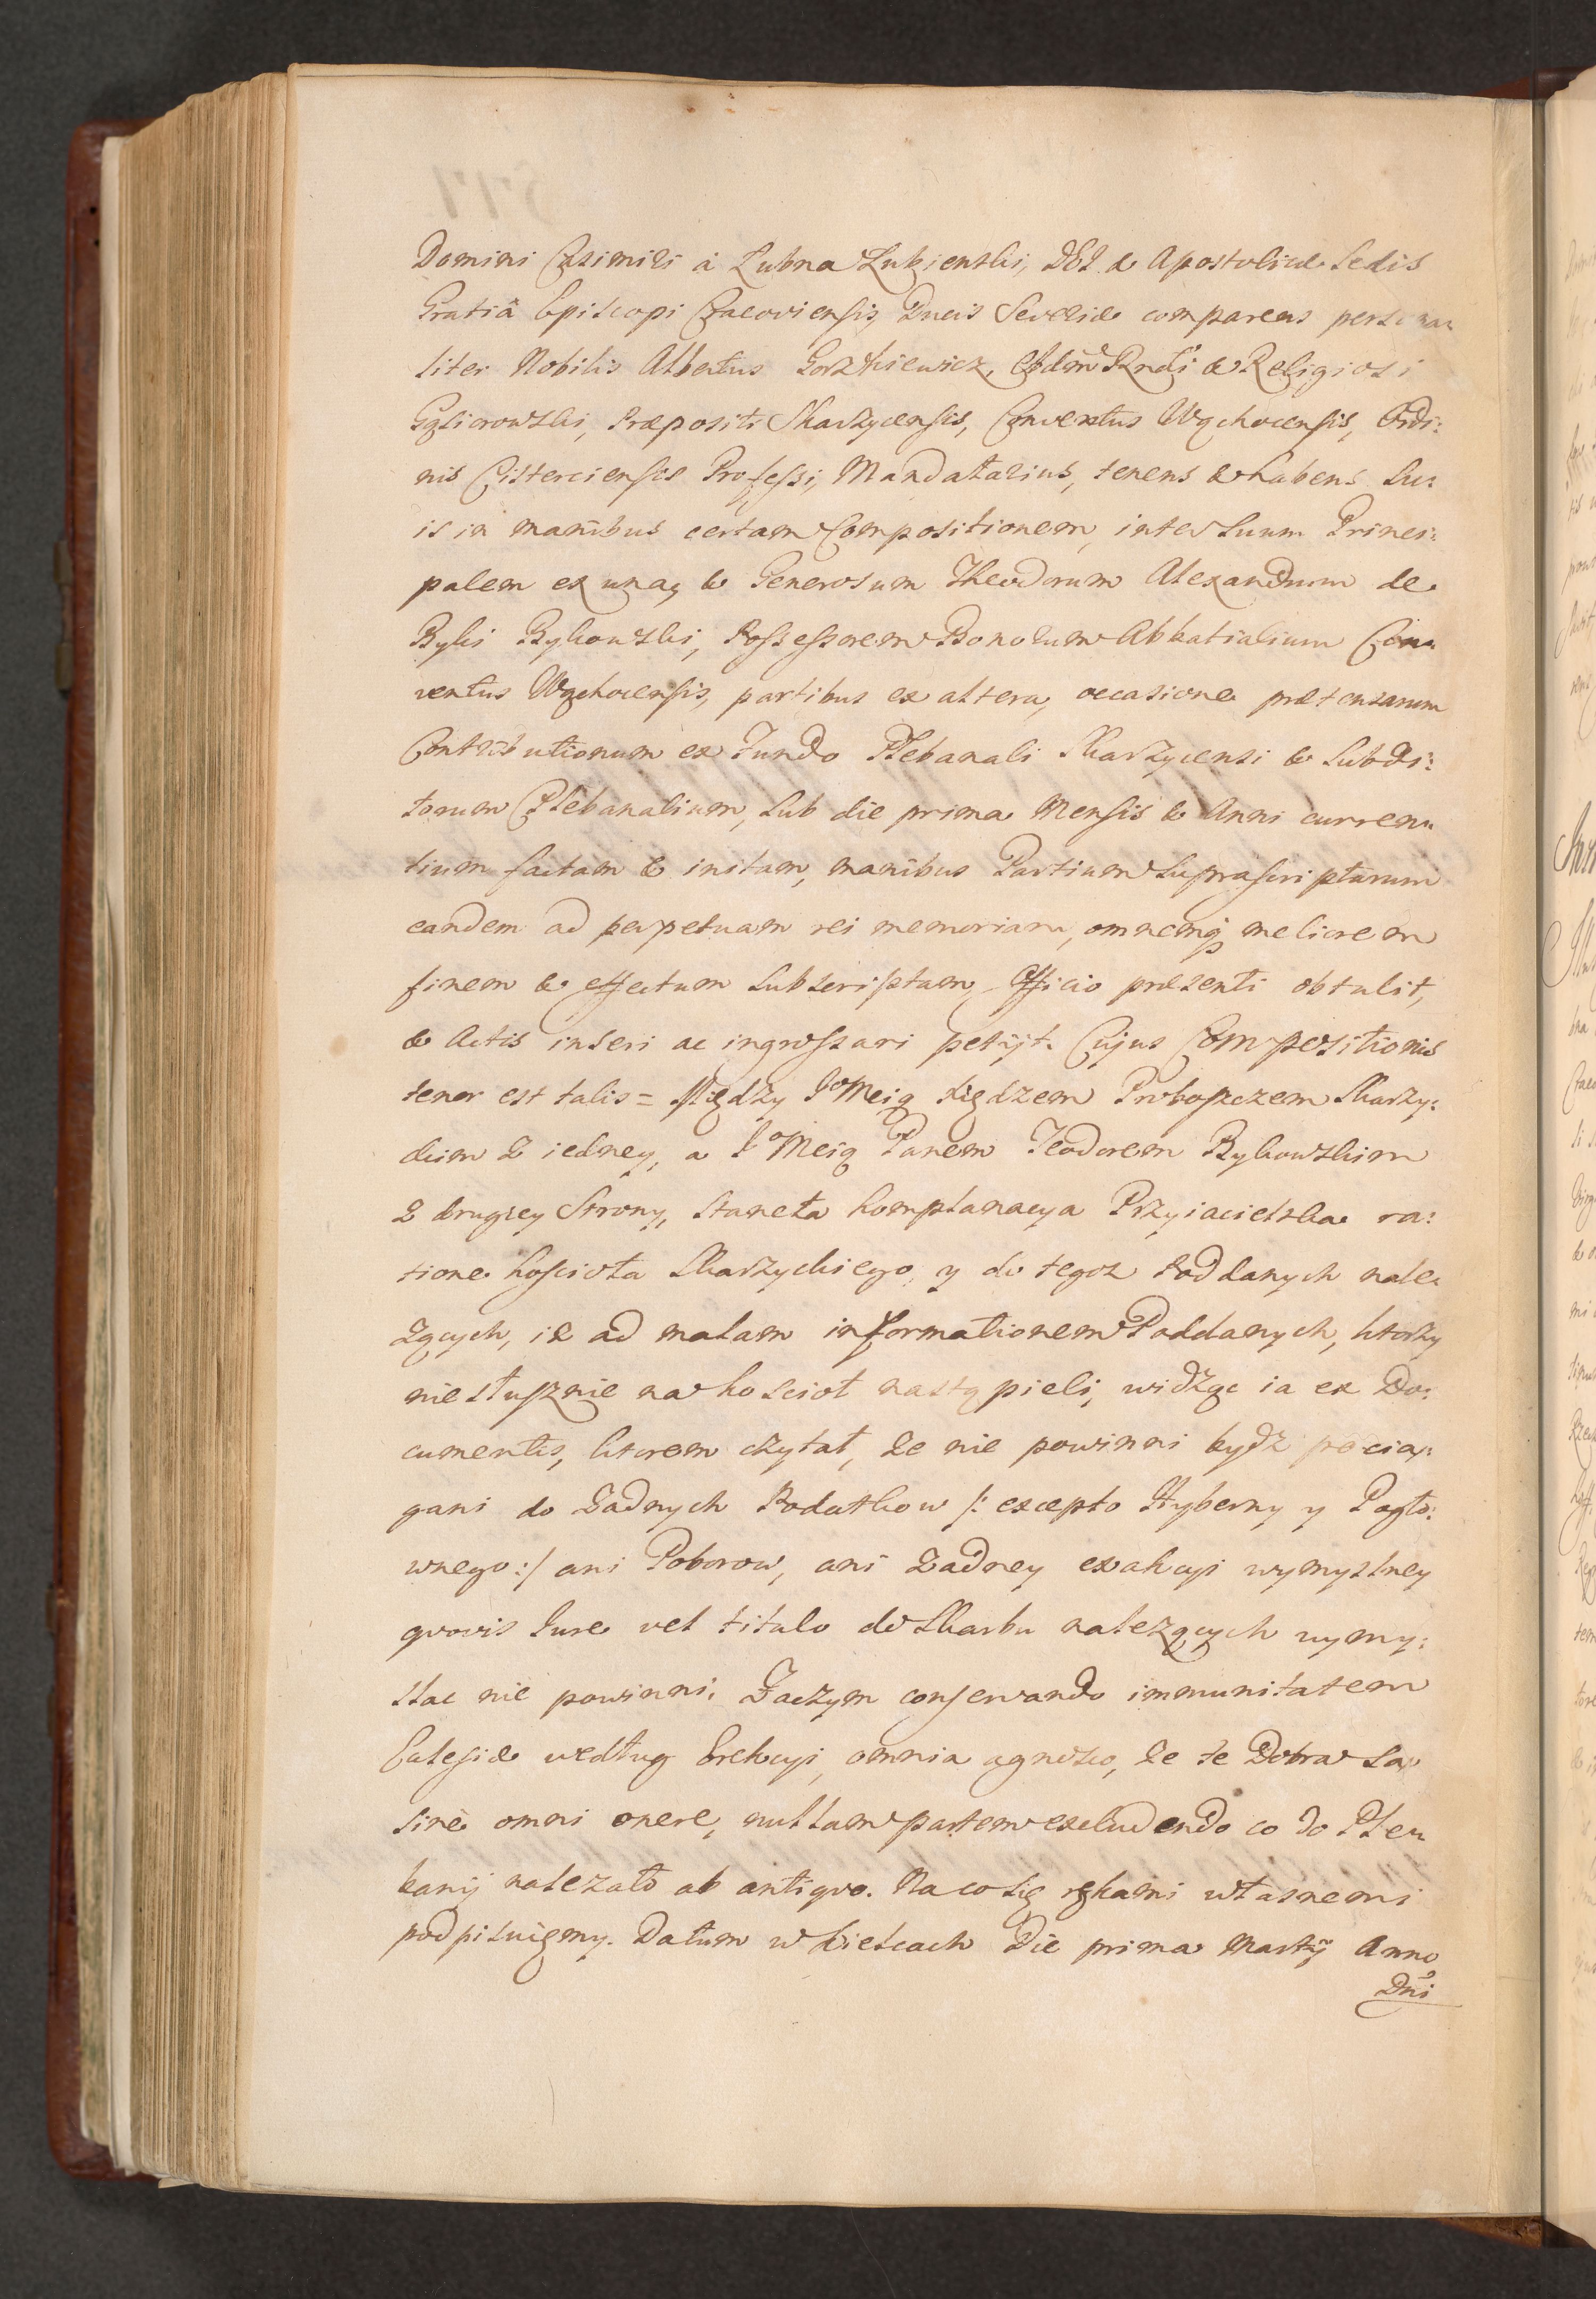 Domini Casimiri à Łubna Łubienski, DEI & Apostolicæ Sedis
Gratiâ Episcopi Cracoviensis, Ducis Severiæ comparens persona=
liter Nobilis Albertus Gorzkiewicz, Rndi & Religiosi
Gąsiorowski, Præpositi Skarzycensis, Conventus Wąchocensis, Ordi:
nis Cisterciensis Professi, Mandatarius, tenens & habens Su:
is in manibus certam Compositionem, inter Suum Princi:
palem ex una, & Generosum Theodorum Alexandrum de
Byki Bykowski, Possessorem Bonorum Abbatialium Con=
ventus Wąchocensis, partibus ex altera, occasione prætensarum
Contributionum ex Fundo Plebanali Skarzycensi & Subdi:
torum Plebanalium, sub die prima Mensis & Anni curren=
tium factam & initam, manibus Partium suprascriptarum
eandem ad perpetuam rei memoriam, omnemq meliorem
finem & effectum subscriptam, Officio præsenti obtulit,
& Actis inseri ac ingrossari petijt. Cujus Compositionis
tenor est talis = Między JoMcią Xiędzem Proboszczem Skarzy:
ckim z iedney, a JoMcią Panem Teodorem Bykowskim
z drugiey Strony, staneła komplanacya Przyiacielska ra:
tione kościoła Skarzyckiego, y do tegoz Poddanych nale=
zących, iz ad malam informationem Poddanych, ktorzy
niesłusznie na koscioł nastąpieli, widząc ia ex Do:
cumentis, ktorem czytał, ze nie powinni bydz pocią:
gani do zadnych Podatkow /: excepto Hyberny y Pogło:
wnego :/ ani Poborow, ani zadney exakcyi wymyslney
qvovis Iure vel titulo do Skarbu nalezących wymy:
slac nie powinni. Zaczym conservando immunitatem
Eclesiæ według Erekcyi, omnia agnosco, ze te Dobra są
sine omni onere, nullam partem excludendo co do Ple=
banij nalezało ab antiqvo. Na co się rękami własnemi
podpisuięmy. Datum w Kielcach Die prima Martij Anno
Dni